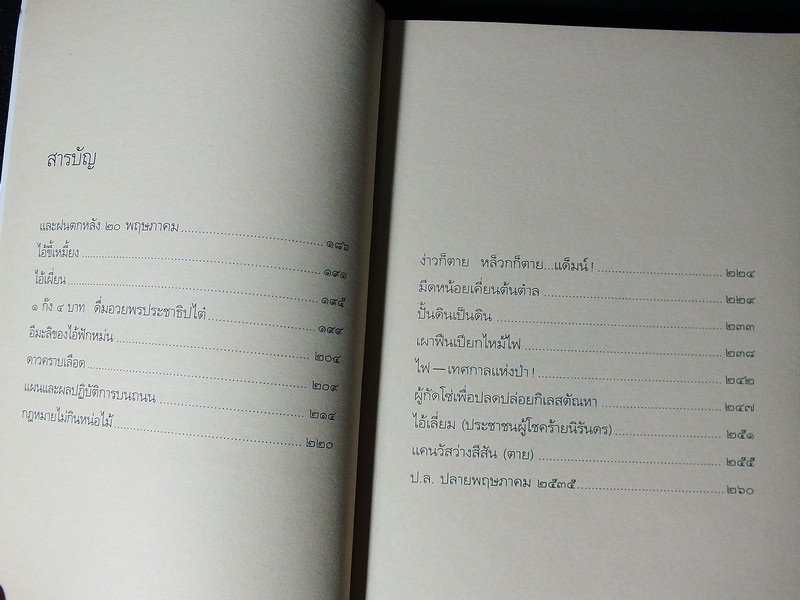 สารบัญ
และฝนตกหลัง ๒๐ พฤษภาคม ๑๘๖
ไอ้ขี้เหมี้ยง ๑๙๑
ไอ้เผี่ยน ๑๙๕
๑ ก๊ง ๔ บาท ดื่มอวยพรประชาธิปไต๋ ๑๙๙
อีมะลิของไอ้ฟักหม่น ๒๐๔
ดาวคราบเลือด ๒๐๙
แผนและผลปฏิบัติการบนถนน ๒๑๔
กฎหมายไม่กินหน่อไม้ ๒๒๐
ง่าวก็ตาย หล็วกก็ตาย...แด็มน์! ๒๒๔
มีดหน้อยเคี่ยนต้นตำล ๒๒๙
ปั้นดินเป็นดิน ๒๓๓
เผาฟืนเปียกไหม้ไฟ ๒๓๘
ไฟ — เทศกาลแห่งป่า! ๒๔๒
ผู้กัดโซ่เพื่อปลดปล่อยกิเลสตัณหา ๒๔๗
ไอ้เลี่ยม (ประชาชนผู้โชคร้ายนิรันดร) ๒๕๑
แคนวัสว่างสีสัน (ตาย) ๒๕๕
ป.ล. ปลายพฤษภาคม ๒๕๓๕ ๒๖๐